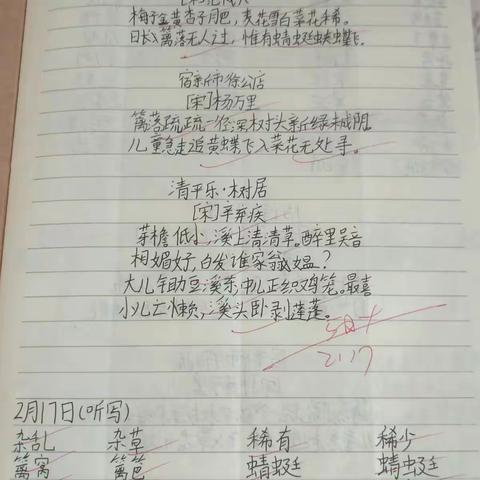 梅子金黄杏子肥，麦花雪白菜花稀。
日长篱落无人过，惟有蜻蜓蛱蝶飞。
宿新市徐公店
[宋]杨万里
篱落疏疏一径深树头新绿未成阴
儿童急走追黄蝶飞入菜花无处寻。
清平乐·村居
[宋]辛弃疾
茅檐低小,溪上清清草。醉里吴音
相媚好,白发谁家翁媪?
大儿锄豆溪东,中儿正织鸡笼。最喜
小儿亡懒,溪头卧剥莲蓬。
2.17
2月17日(听写)
杂乱 杂草 稀有 稀少
篱窝 篱笆 蜻蜓 蜻蜓